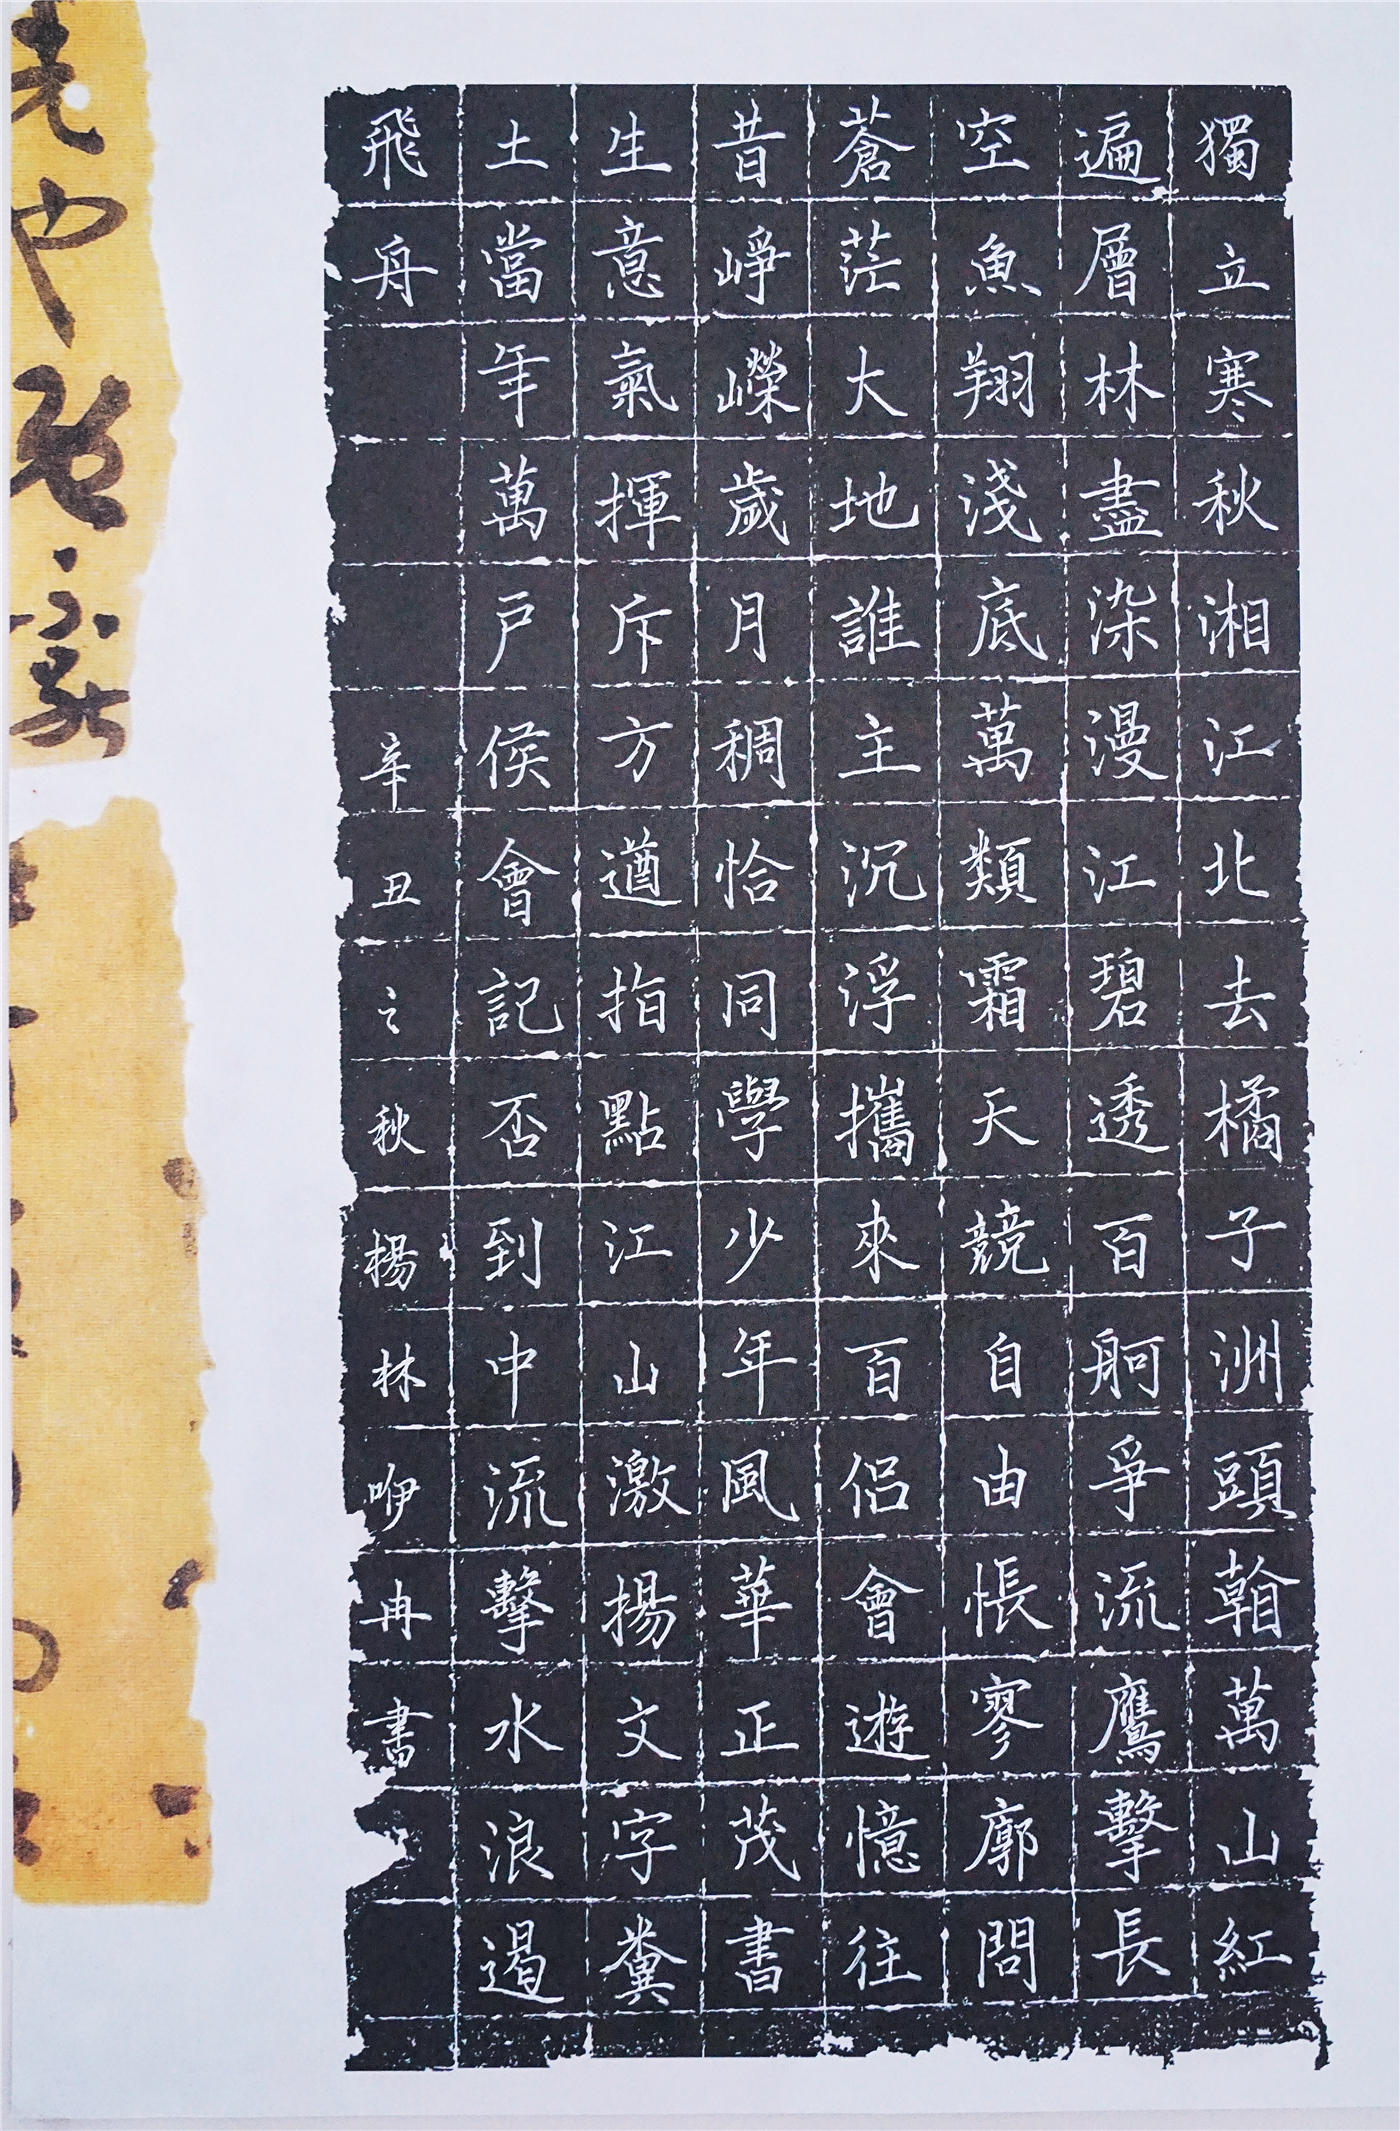 獨立寒秋湘江北去橘子洲頭翰萬山紅
遍層林盡染漫江碧透百舸爭流鷹擊長
空魚翔淺底萬類霜天競自由悵寥廓問
蒼茫大地誰主沉浮攜來百侶會遊憶往
昔崢嶸歲月稠恰同學少年風華正茂書
生意氣揮斥方遒指點江山激揚文字糞
土當年萬戶侯會記否到中流擊水浪遏
飛舟
辛丑之秋楊林咿冉書